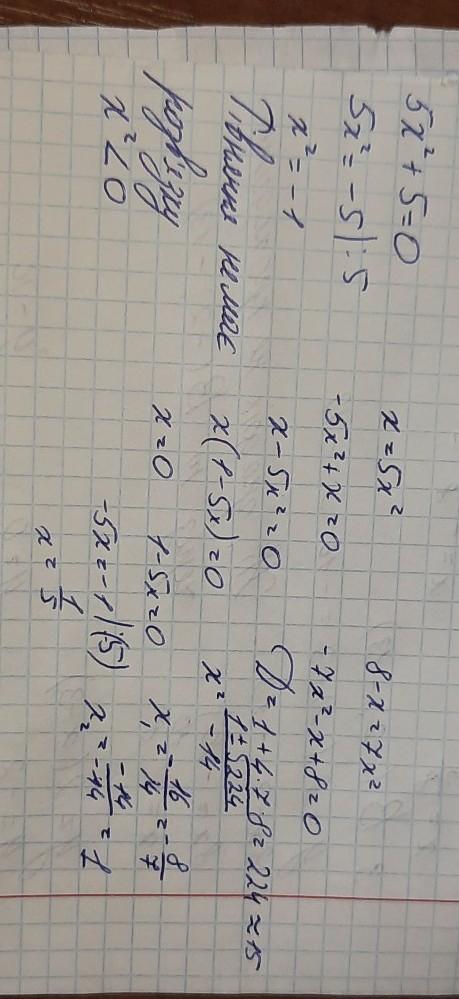 5x² + 5 = 0
5x² = -5 | : 5
x² = -1
Рівняння немає
розв'язку
x² < 0
x = 5x²
-5x² + x = 0
x - 5x² = 0
x(1 - 5x) = 0
x = 0 1 - 5x = 0
-5x = -1 | :(5)
x = 1/5
8 - x = 7x²
-7x² - x + 8 = 0
D = 1 + 4 · 7 · 8 = 224 ≈ 15
x = (1 ± √224)/-14
x₁ = 16/-14 = -8/7
x₂ = -14/-14 = 1